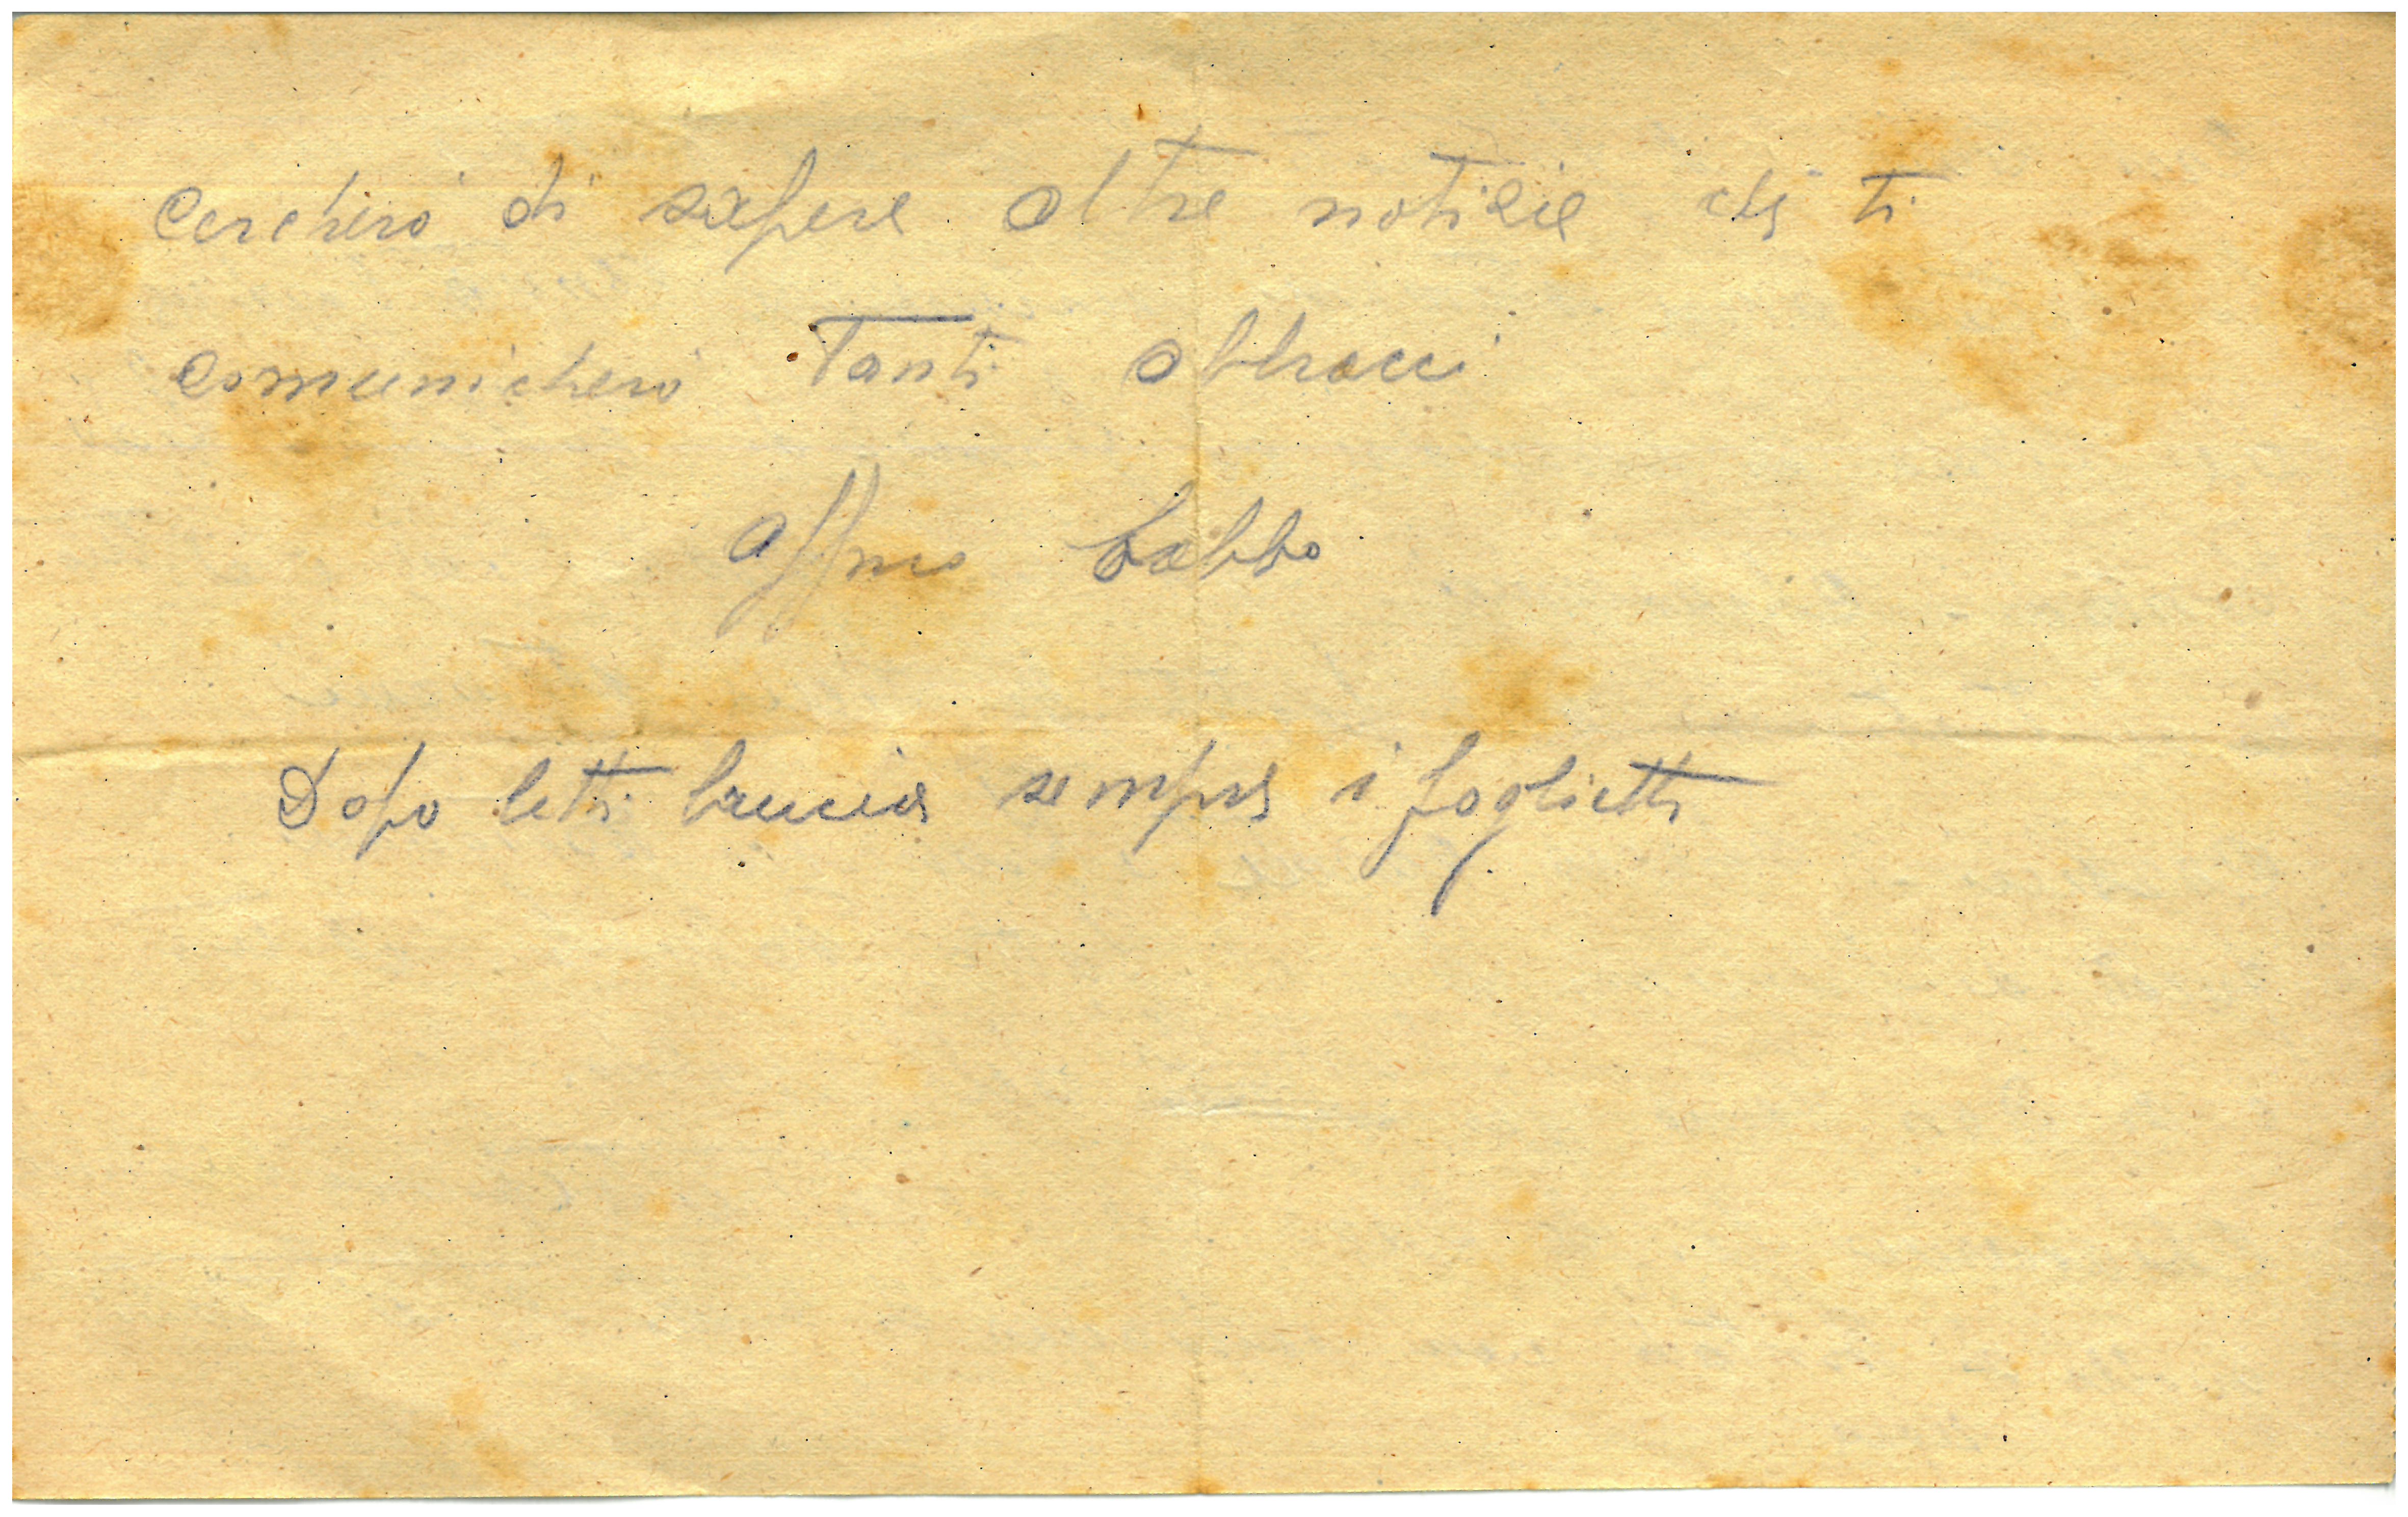 Cercherò di sapere altre notizie che ti
comunicherò Tanti abbracci
affmo babbo
Dopo letti brucia sempre i foglietti